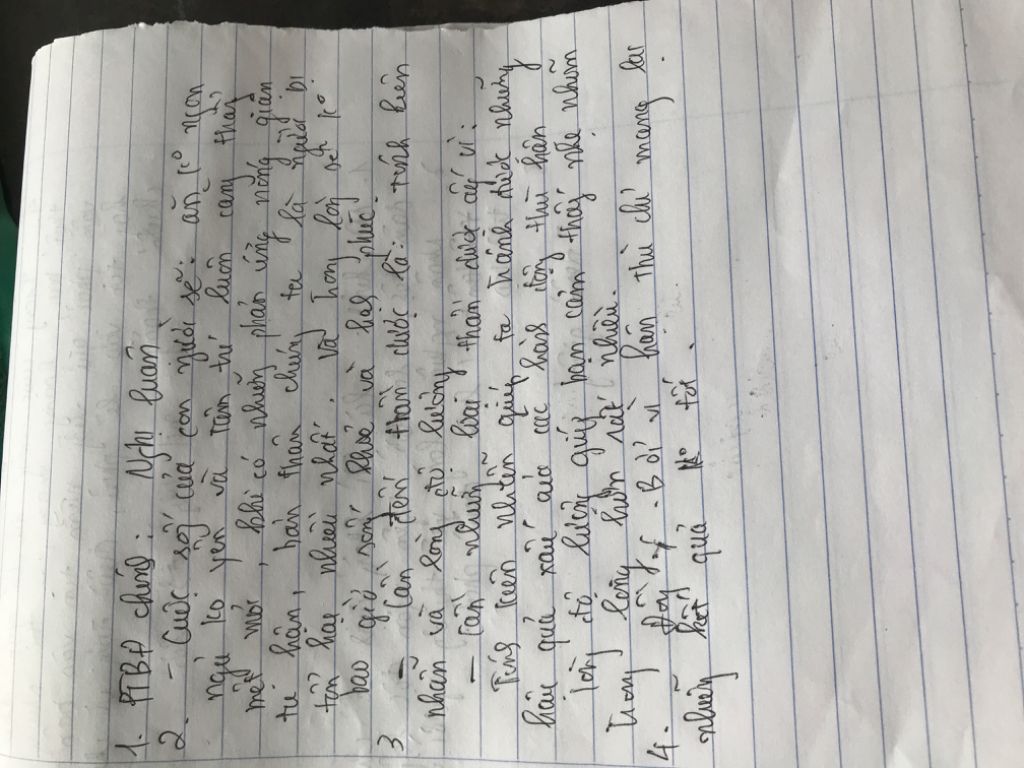 1. PTBĐ chính: Nghị luận
2. - Cuộc sống của con người sẽ: ăn ko ngon
ngủ ko yên và tâm trí luôn căng thẳng,
mệt mỏi, khi có những phản ứng nóng giận
tù hận, bản thân chúng ta là người bị
tổn hại nhiều nhất. Và trong lòng sẽ ko
bao giờ sống khỏe và hạnh phúc.
3 - Cần đến thân được là: tính kiên
nhẫn và lòng độ lượng
- Cần những loại thân được ấy vì:
Tính kiên nhẫn giúp ta tránh được những
hậu quả xấu của các hành động thù hận
lòng độ lượng giúp bạn cảm thấy nhẹ nhõm
trong lòng hơn rất nhiều.
4. Đồng ý. Bởi vì hận thù chỉ mang lại
những kết quả ko tốt.